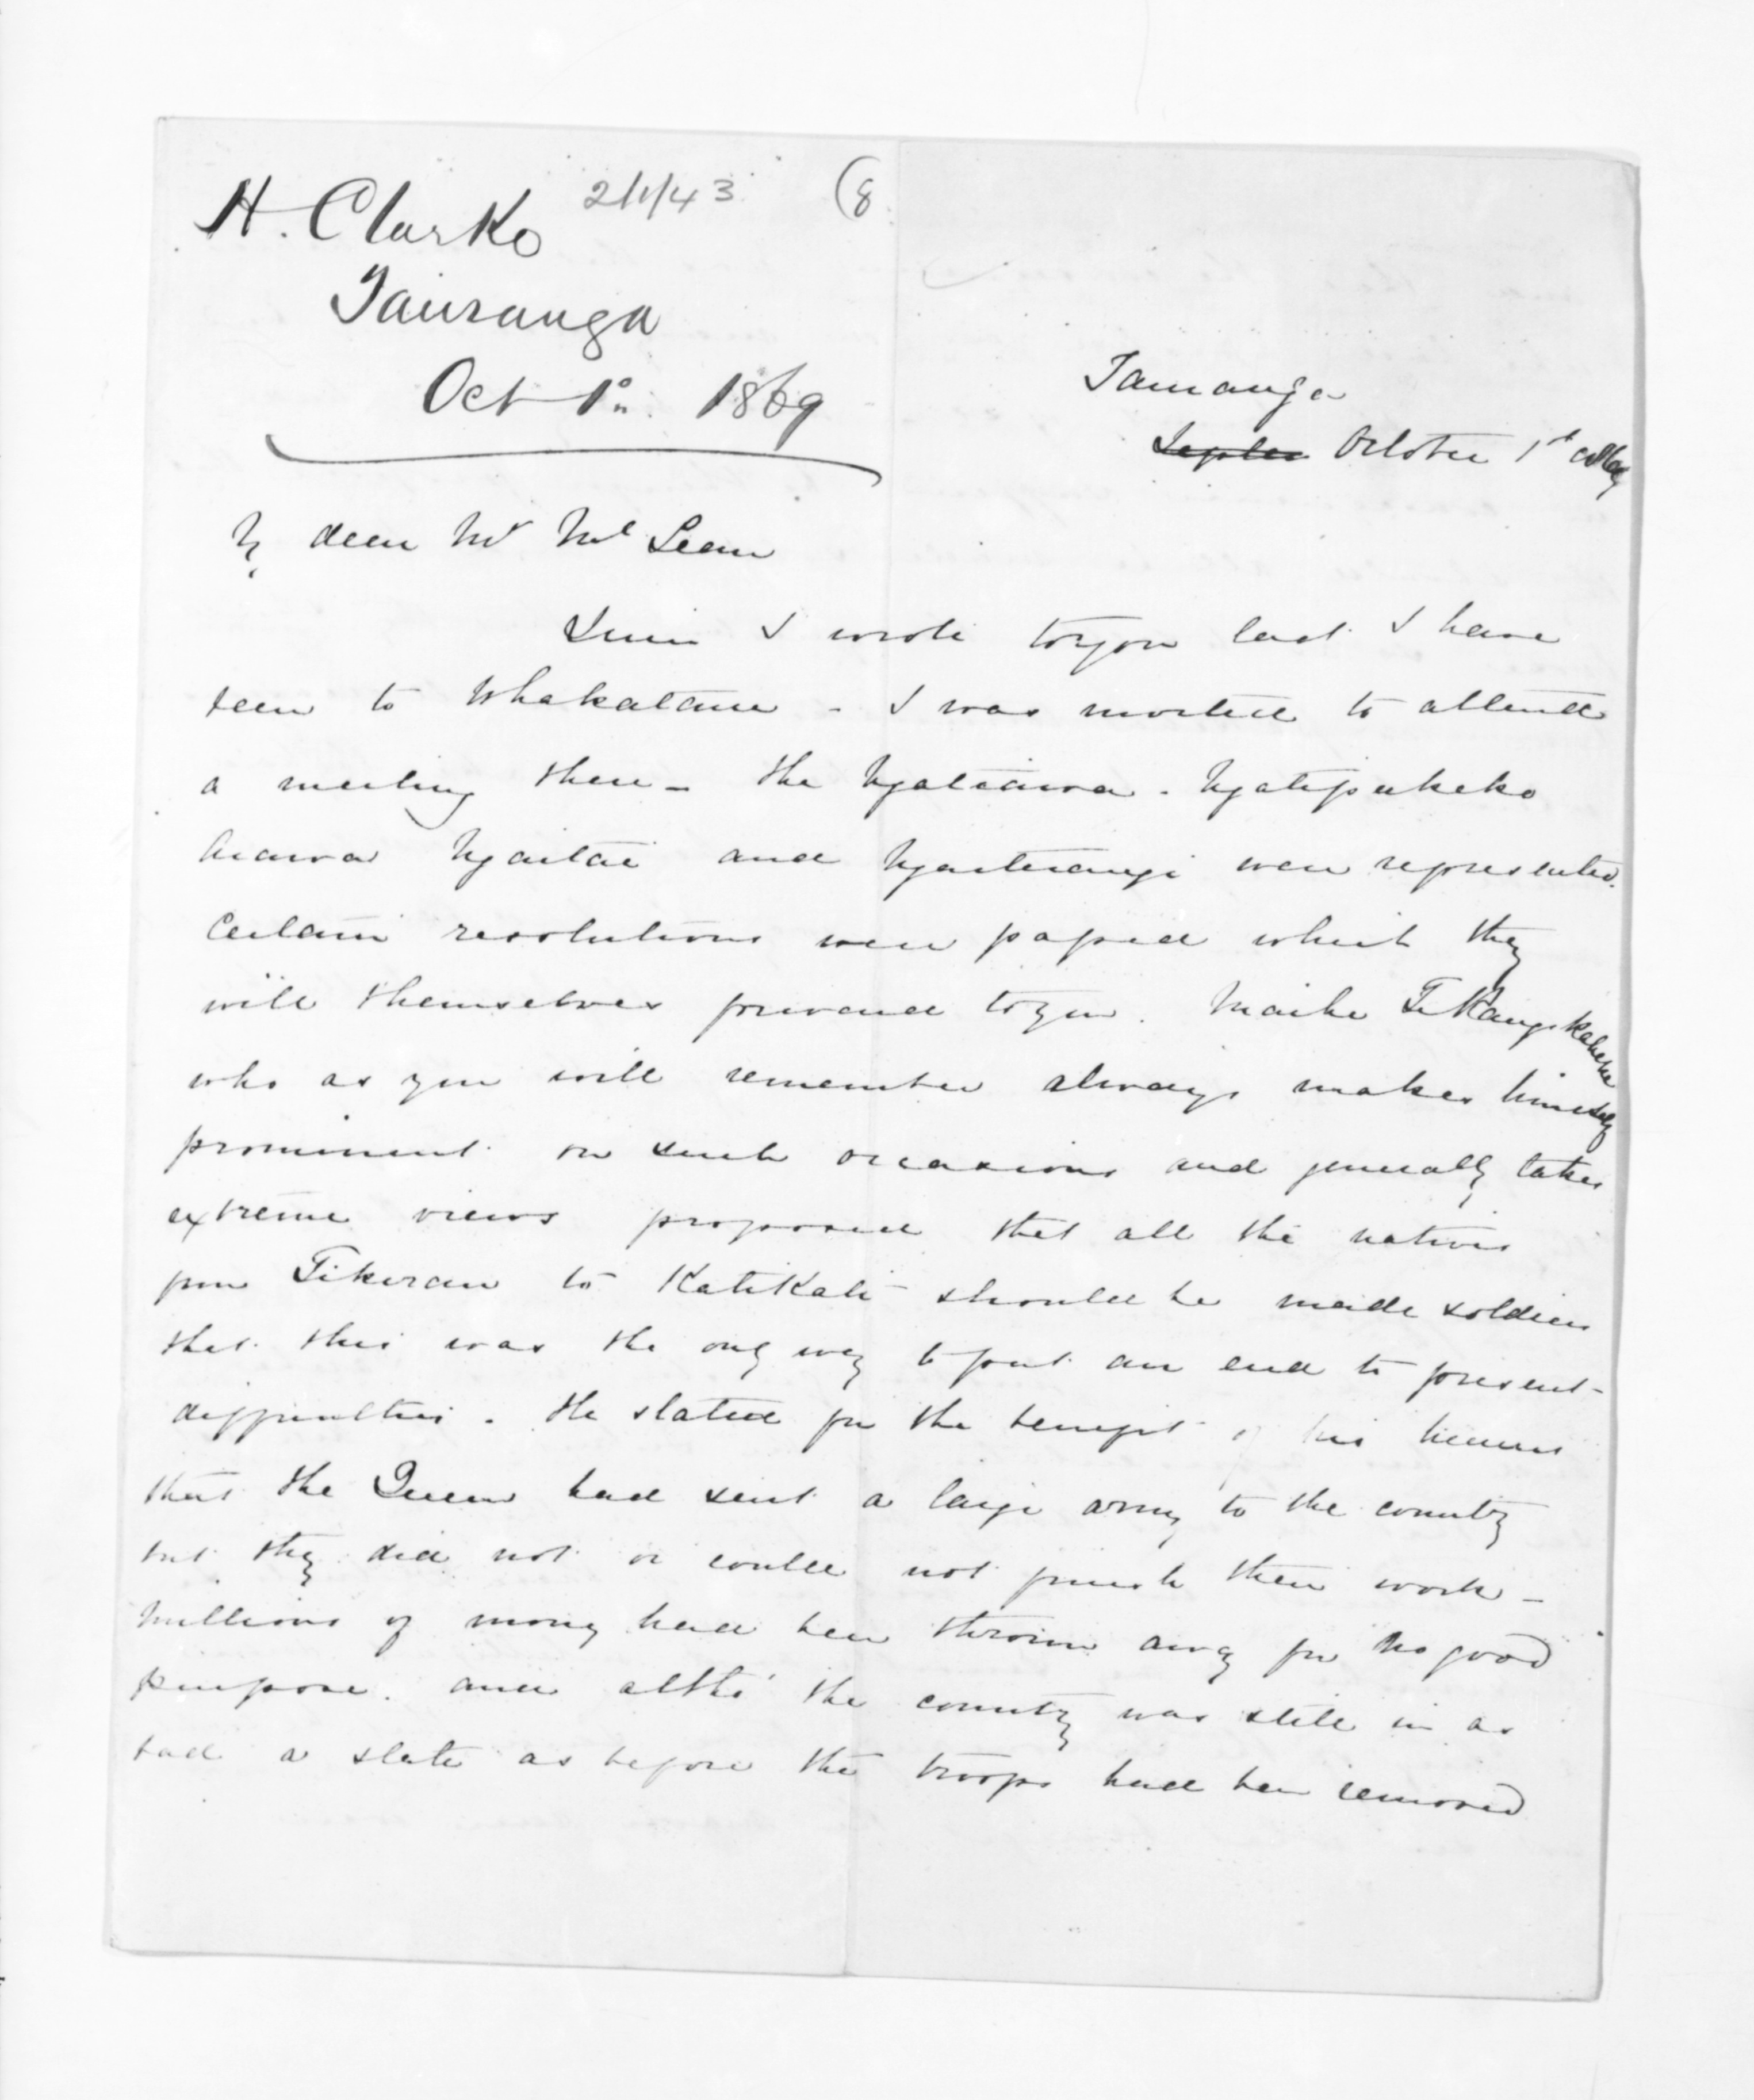 H. Clarke
2/1/43
(8
Tauranga
Oct 1° 1869
Tauranga
Septer October 1st 1869
My dear Mr McLean
Since I wrote to you last I have
been to Whakatane - I was invited to attend
a meeting there - the Ngatiawa - Ngatipukeko
Arawa Ngaitai and Ngaiterangi were represented.
Certain resolutions were passed which they
will themselves forward to you.
who as you will remember always makes himself
prominent on such occasions and generally takes
extreme views proposed that all the natives
from Tikirau to KatiKati should be made soldiers
that this was the only way to put an end to present
difficulties. He stated for the benefit of his hearers
that the Queen had sent a large army to the country
but they did not or could not finish their work -
Millions of money had been thrown away for no good
purpose. and altho' the country was still in as
bad a state as before the troops had been removed